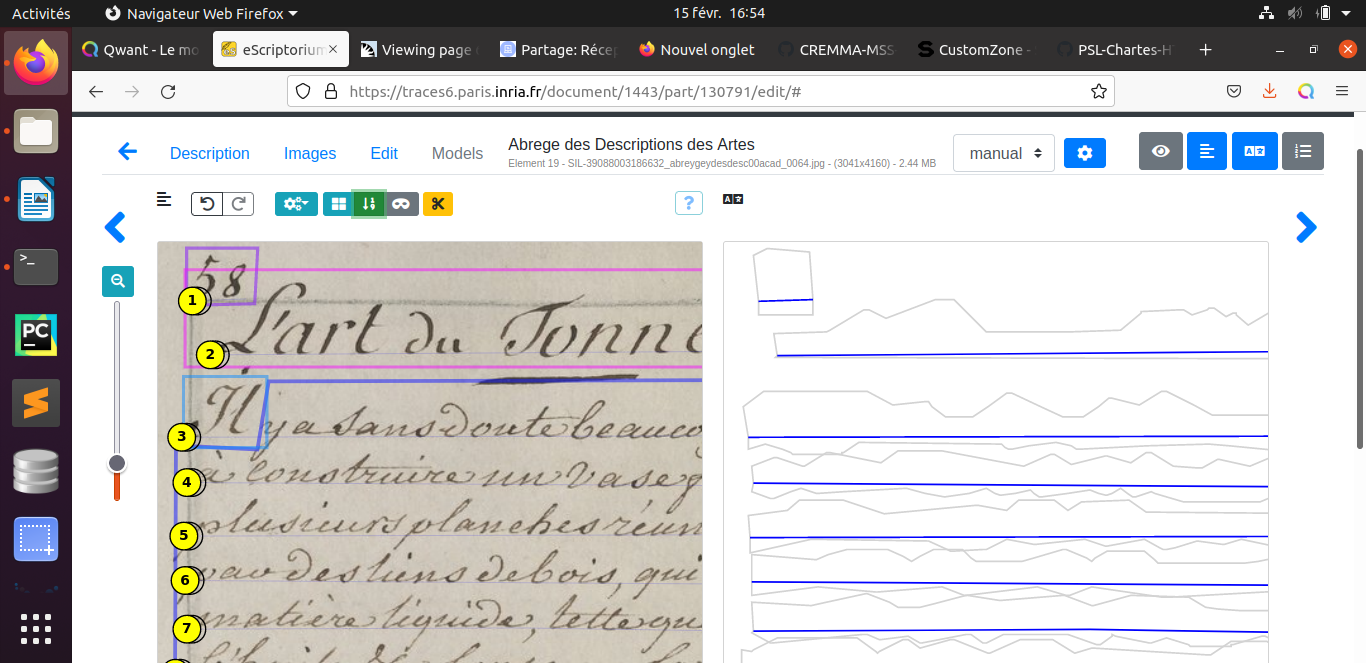 Activités
Navigateur Web Firefox
15 févr. 16:54
Qwant - Le mo
eScriptorium
Viewing page
Partage: Récep
Nouvel onglet
CREMMA-MSS
CustomZone -
PSL-Chartes-H
https://traces6.paris.inria.fr/document/1443/part/130791/edit/#
Description
Images
Edit
Models
Abrege des Descriptions des Artes
Element 19 - SIL-39088003186632_abreygeydesdesc00acad_0064.jpg - (3041x4160) - 2.44 MB
manual
?
58
1
L'art du Tonne
2
Il y a sans doute beauco
3
à construire un vase
4
plusieurs planches réun
5
par des liens de bois, qui
6
matière liquide, telle qu
7
PC
>_